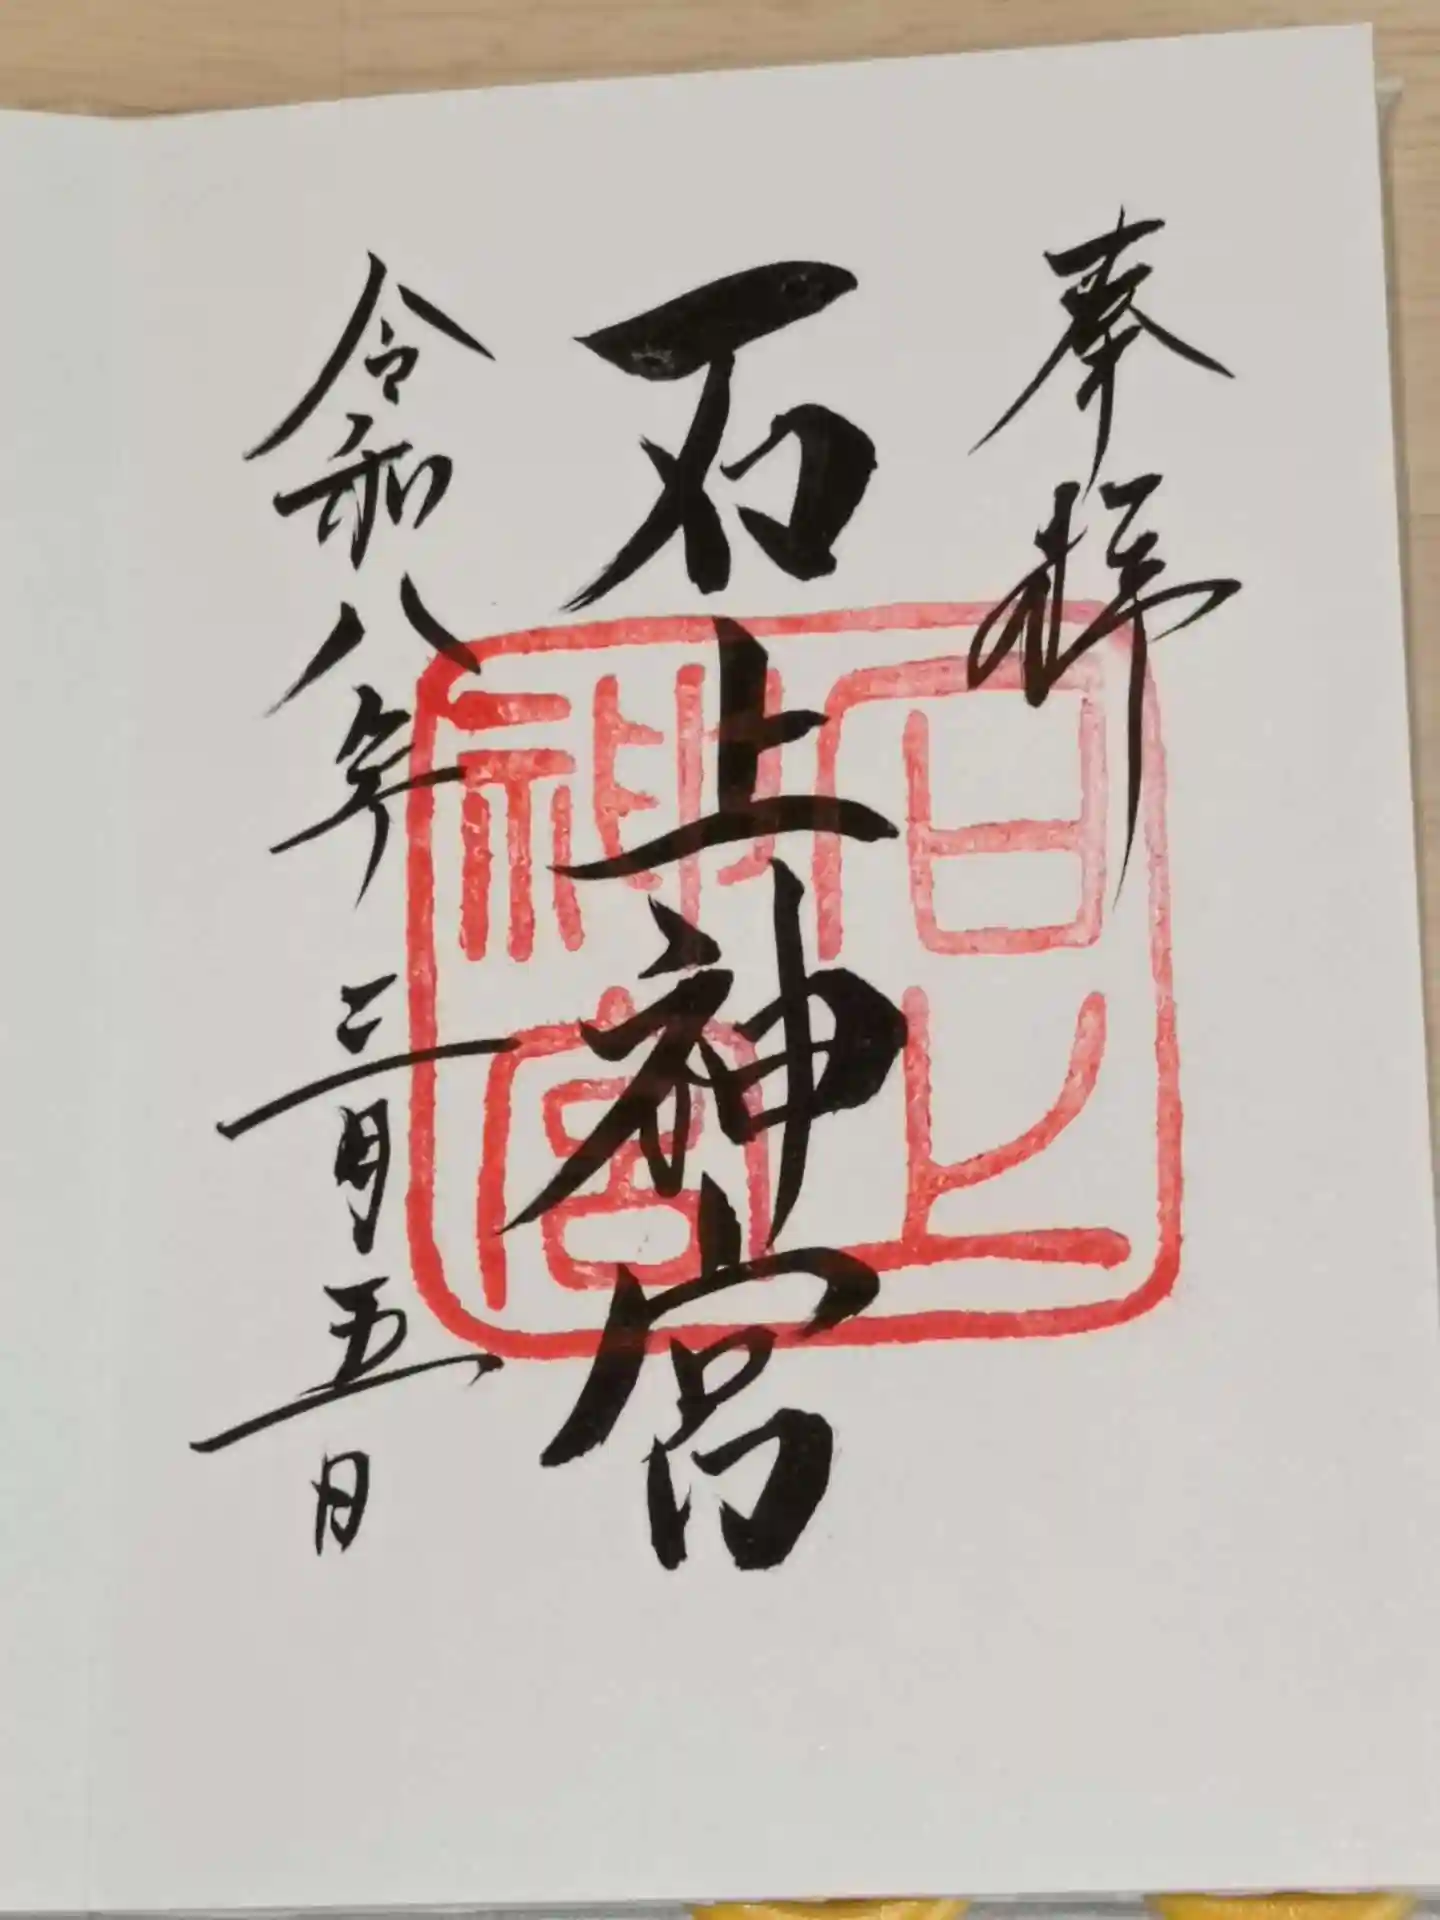 奉拝
石上神宮
石上神宮
令和八年三月五日